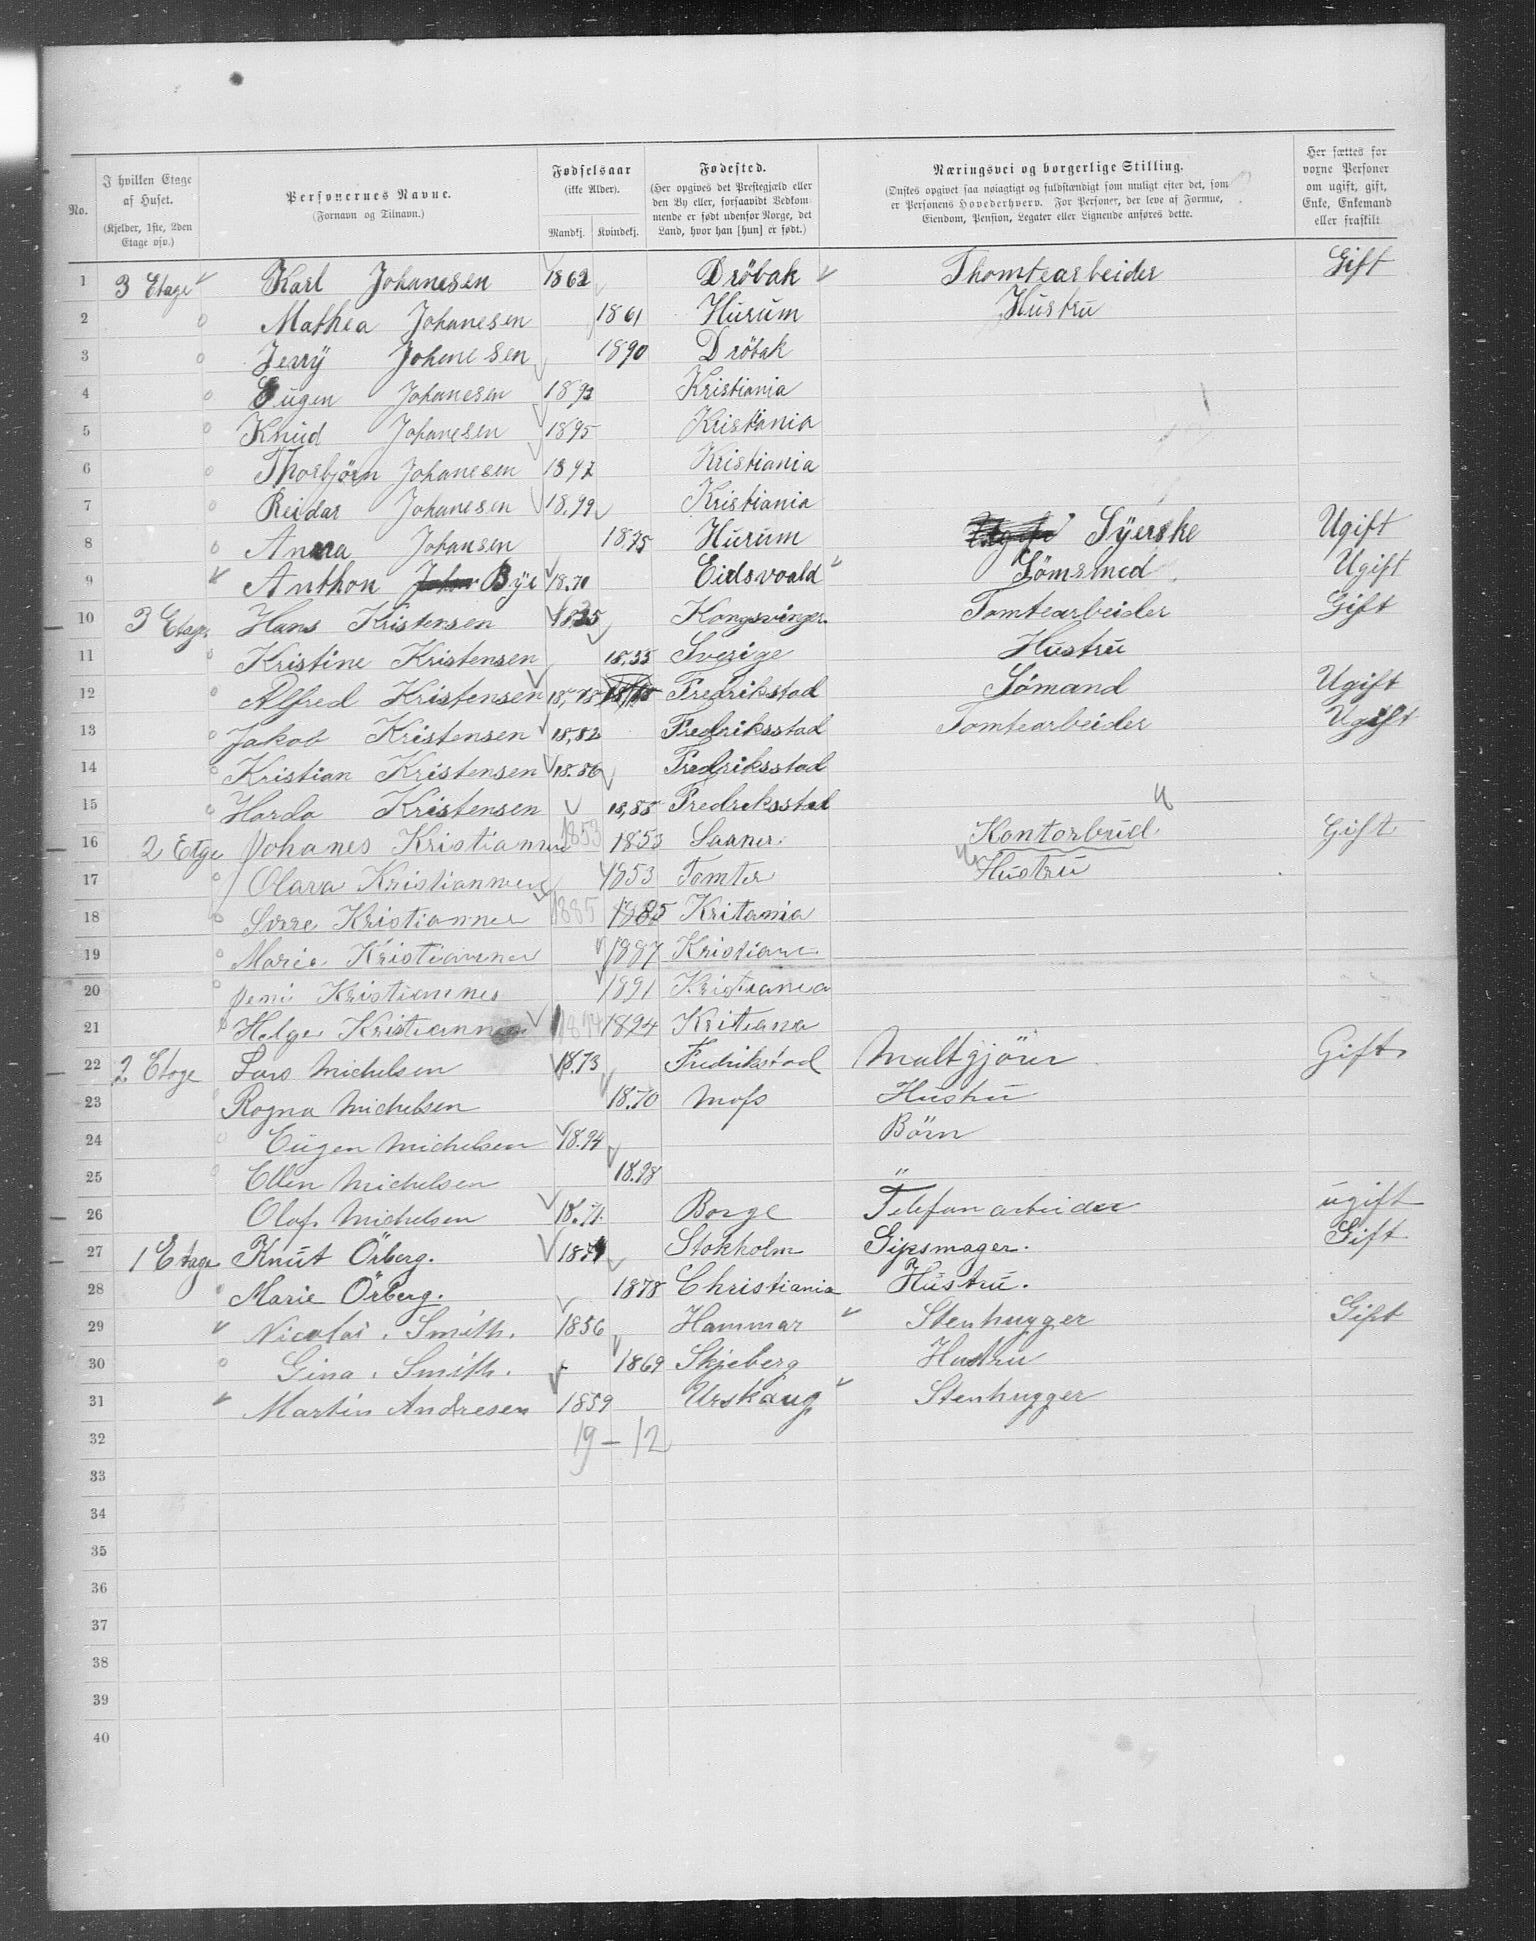 No.
I hvilken Etage af Huset. (Kjelder, 1ste, 2den Etage osv.)
Personernes Navne. (Fornavn og Tilnavn.)
Fødselsaar (ikke Alder). Mandkj. Kvindekj.
Fødested. (Her opgives det Prestegjæld eller den By eller, forsaavidt Vedkommende er født udenfor Norge, det Land, hvor han [hun] er født.)
Næringsvei og borgerlige Stilling. (Ønskes opgivet saa nøiagtigt og fuldstændigt som muligt efter det, som er Personens Hovederhverv. For Personer, der leve af Formue, Eiendom, Pension, Legater eller Lignende anføres dette.
Her sættes for voxne Personer om ugift, gift, Enke, Enkemand eller fraskilt
1 3 Etage Karl Johanesen 1862 Dröbak Thomtearbeider Gift
2 Mathea Johanesen 1861 Hurum Hustru
3 Jerry Johanesen 1890 Dröbak
4 Eugen Johanesen 1893 Kristiania
5 Knud Johanesen 1895 Kristiania
6 Thorbjørn Johanesen 1897 Kristiania
7 Reidar Johanesen 18.99 Kristiania
8 Anna Johansen 1875 Hurum Syerske Ugift
9 Anthon Bye 18.70 Eidsvoald Sömsmed Ugift
10 3 Etage Hans Kristensen 1835 Kongsvinger Tomtearbeider Gift
11 Kristine Kristensen 18,35 Sverige Hustru
12 Alfred Kristensen 18,78 Fredrikstad Sömand Ugift
13 Jakob Kristensen 18,82 Fredriksstad Tomtearbeider Ugift
14 Kristian Kristensen 18.86 Fredriksstad
15 Harda Kristensen 18,85 Fredreksstad
16 2 Etge Johanes Kristiannes 1853 1853 Saaner Kontorbud Gift
17 Olava Kristiannes 1853 Tomter Hustru
18 Svrre Kristiannes 1885 1885 Kritania
19 Marie Kristiannes 1887 Kristiani
20 Jeni Kristiannes 1891 Kristiania
21 Helge Kristiannes 1894 1894 Kritiana
22 2 Etage Lars Michelsen 18.73 Fredrikstad Maltgjörer Gift
23 Ragna Michelsen 18.70 Moss Hustru
24 Eugen Michelsen 18.94 Börn
25 Ellen Michelsen 18.98 "
26 Olaf Michelsen 18.71. Borge Telefonarbeider ugift
27 1 Etage Knut Örberg. 1871 Stokholm Gipsmager. Gift
28 Marie Örberg. 1878 Christiania Hustru.
29 Nicolai Smith. 1856 Hammar Stenhugger Gift
30 Gina Smith. 1869 Skjeberg Hustru
31 Martin Andresen 1859 Urskaug Stenhugger
32 19 – 12
33
34
35
36
37
38
39
40